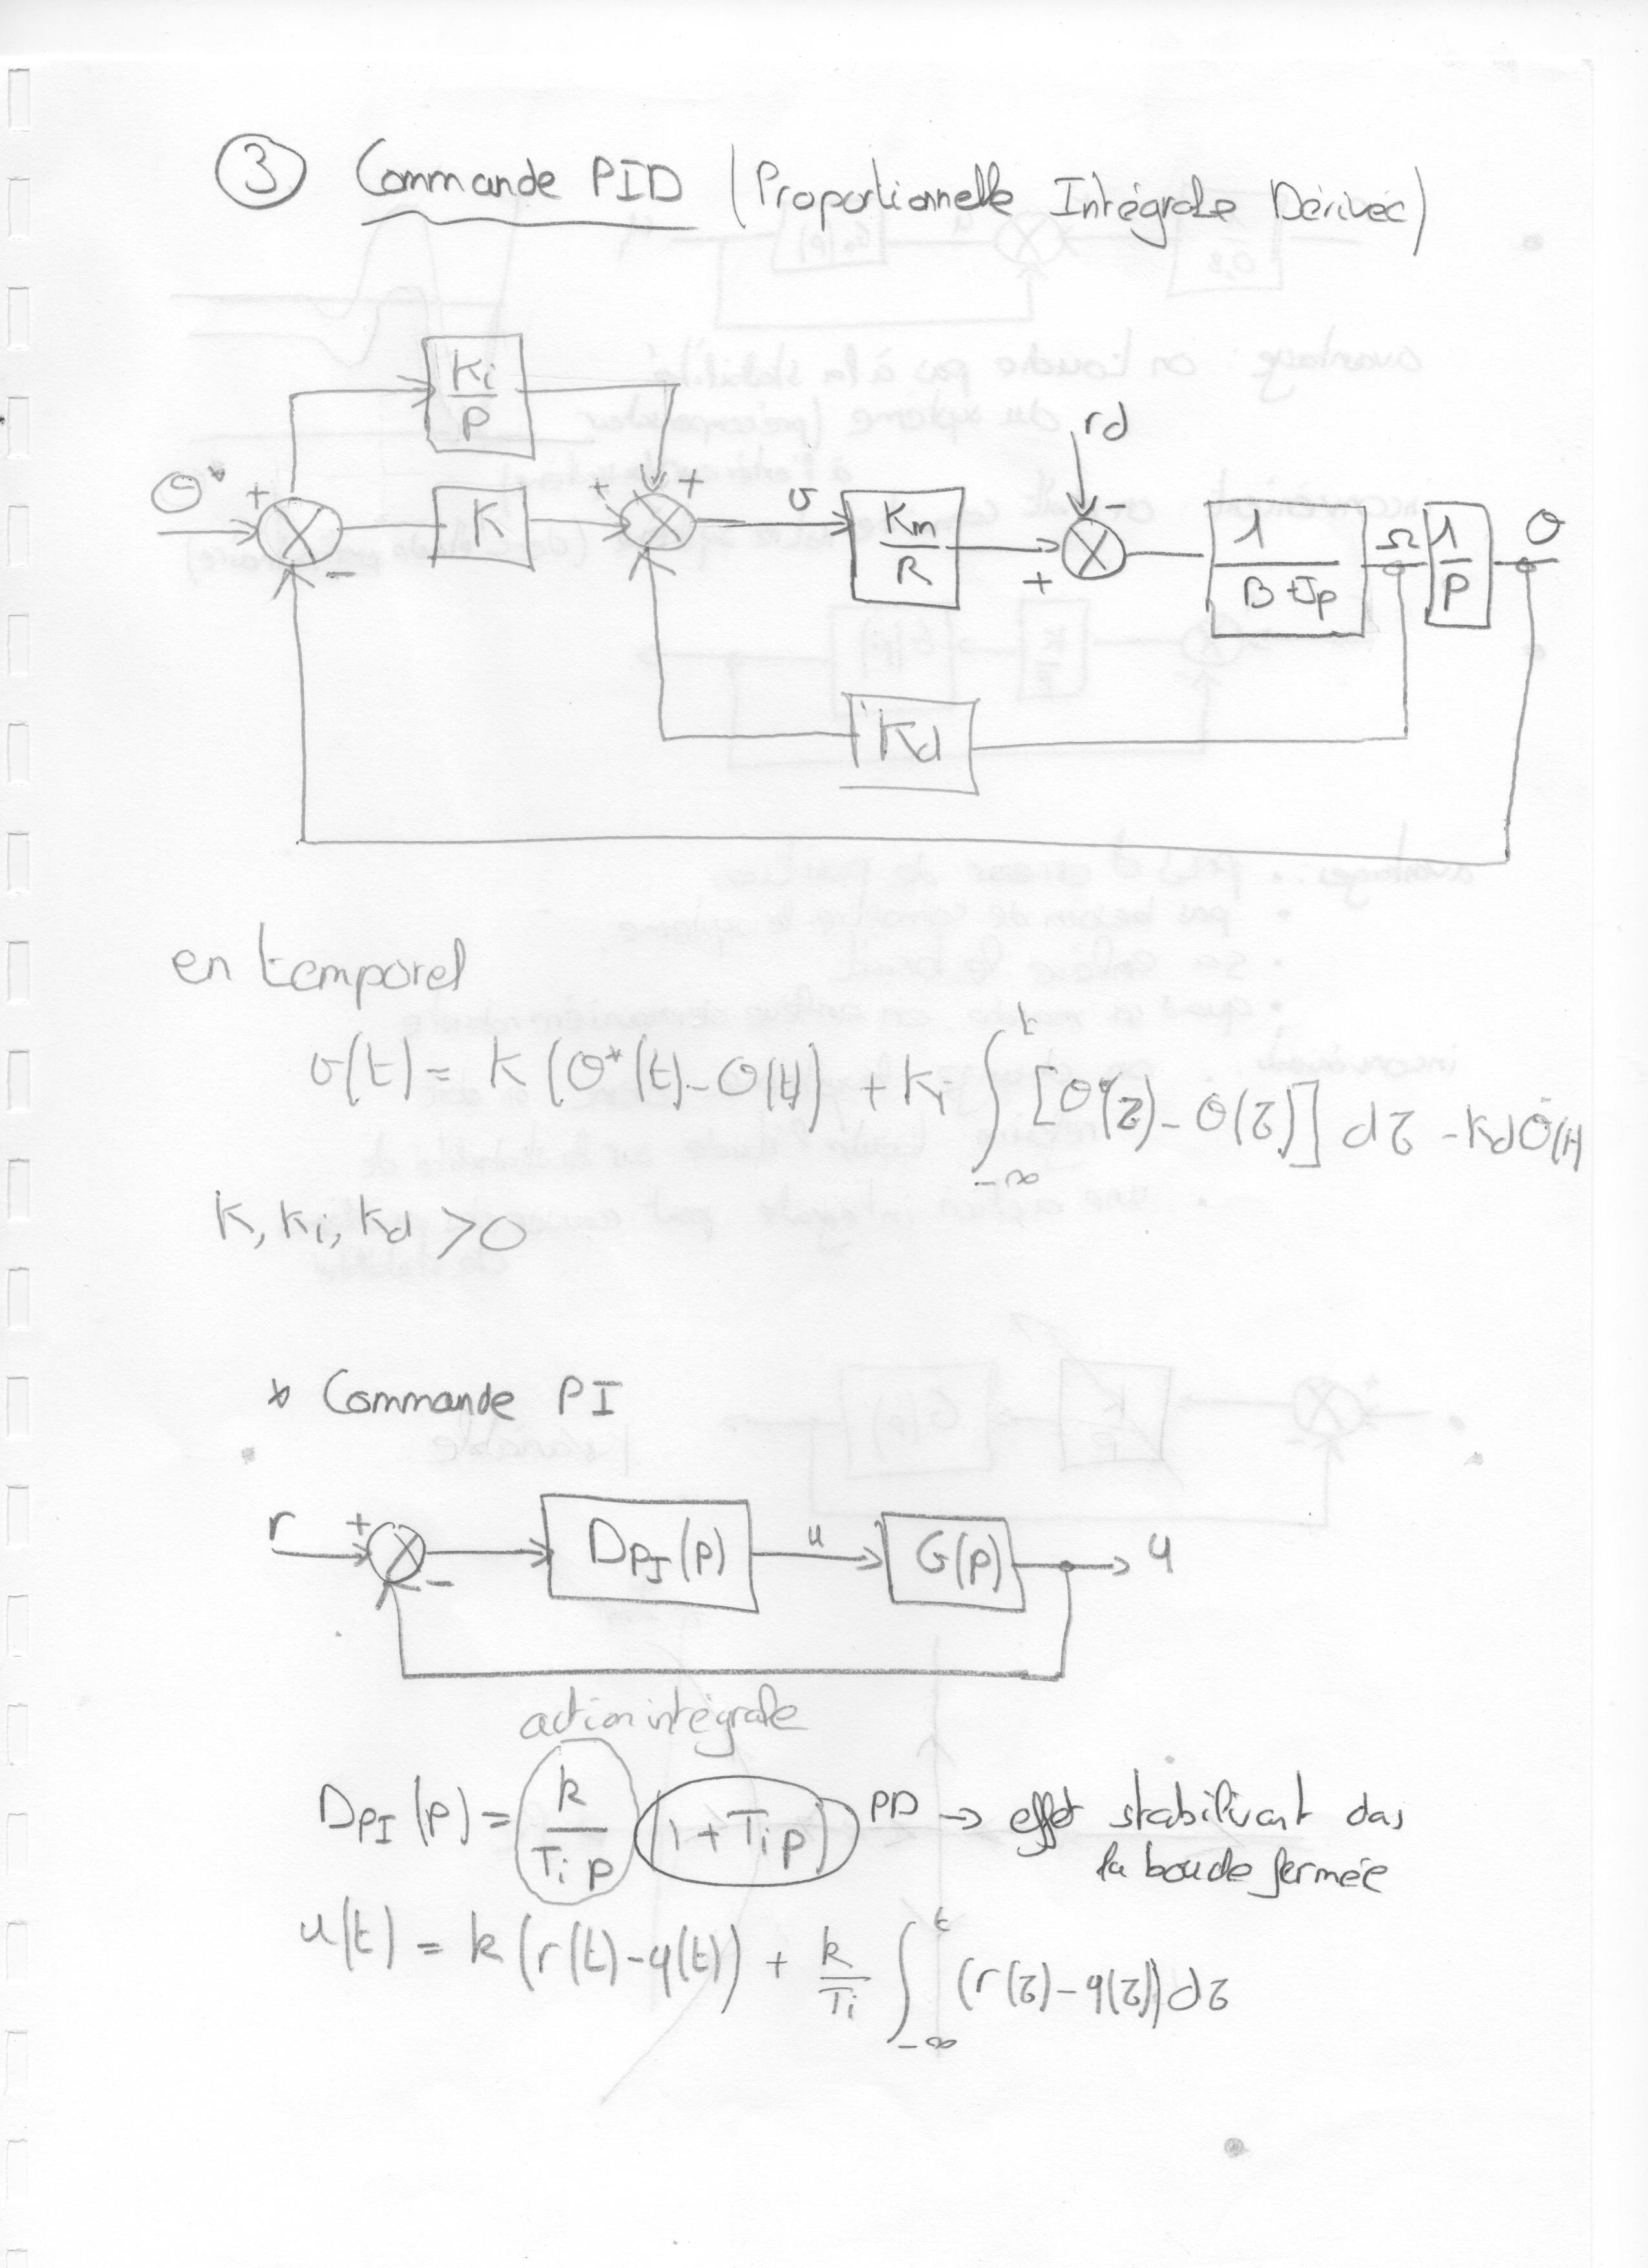 ③ Commande PID (Proportionnelle Intégrale Dérivée)
Ki/p
rd
θ* + - K + + v Km/R + - 1/(B+Jp) Ω 1/p θ
Kd
en temporel
v(t) = K (θ*(t) - θ(t)) + Ki ∫_{-∞}^{t} [θ*(τ) - θ(τ)] dτ - Kd θ̇(t)
K, Ki, Kd > 0
* Commande PI
r + - D_PI(p) u G(p) y
action intégrale
D_PI(p) = k/(Ti p) (1 + Ti p) PD → effet stabilisant das
la boucle fermée
u(t) = k (r(t) - y(t)) + k/Ti ∫_{-∞}^{t} (r(τ) - y(τ)) dτ